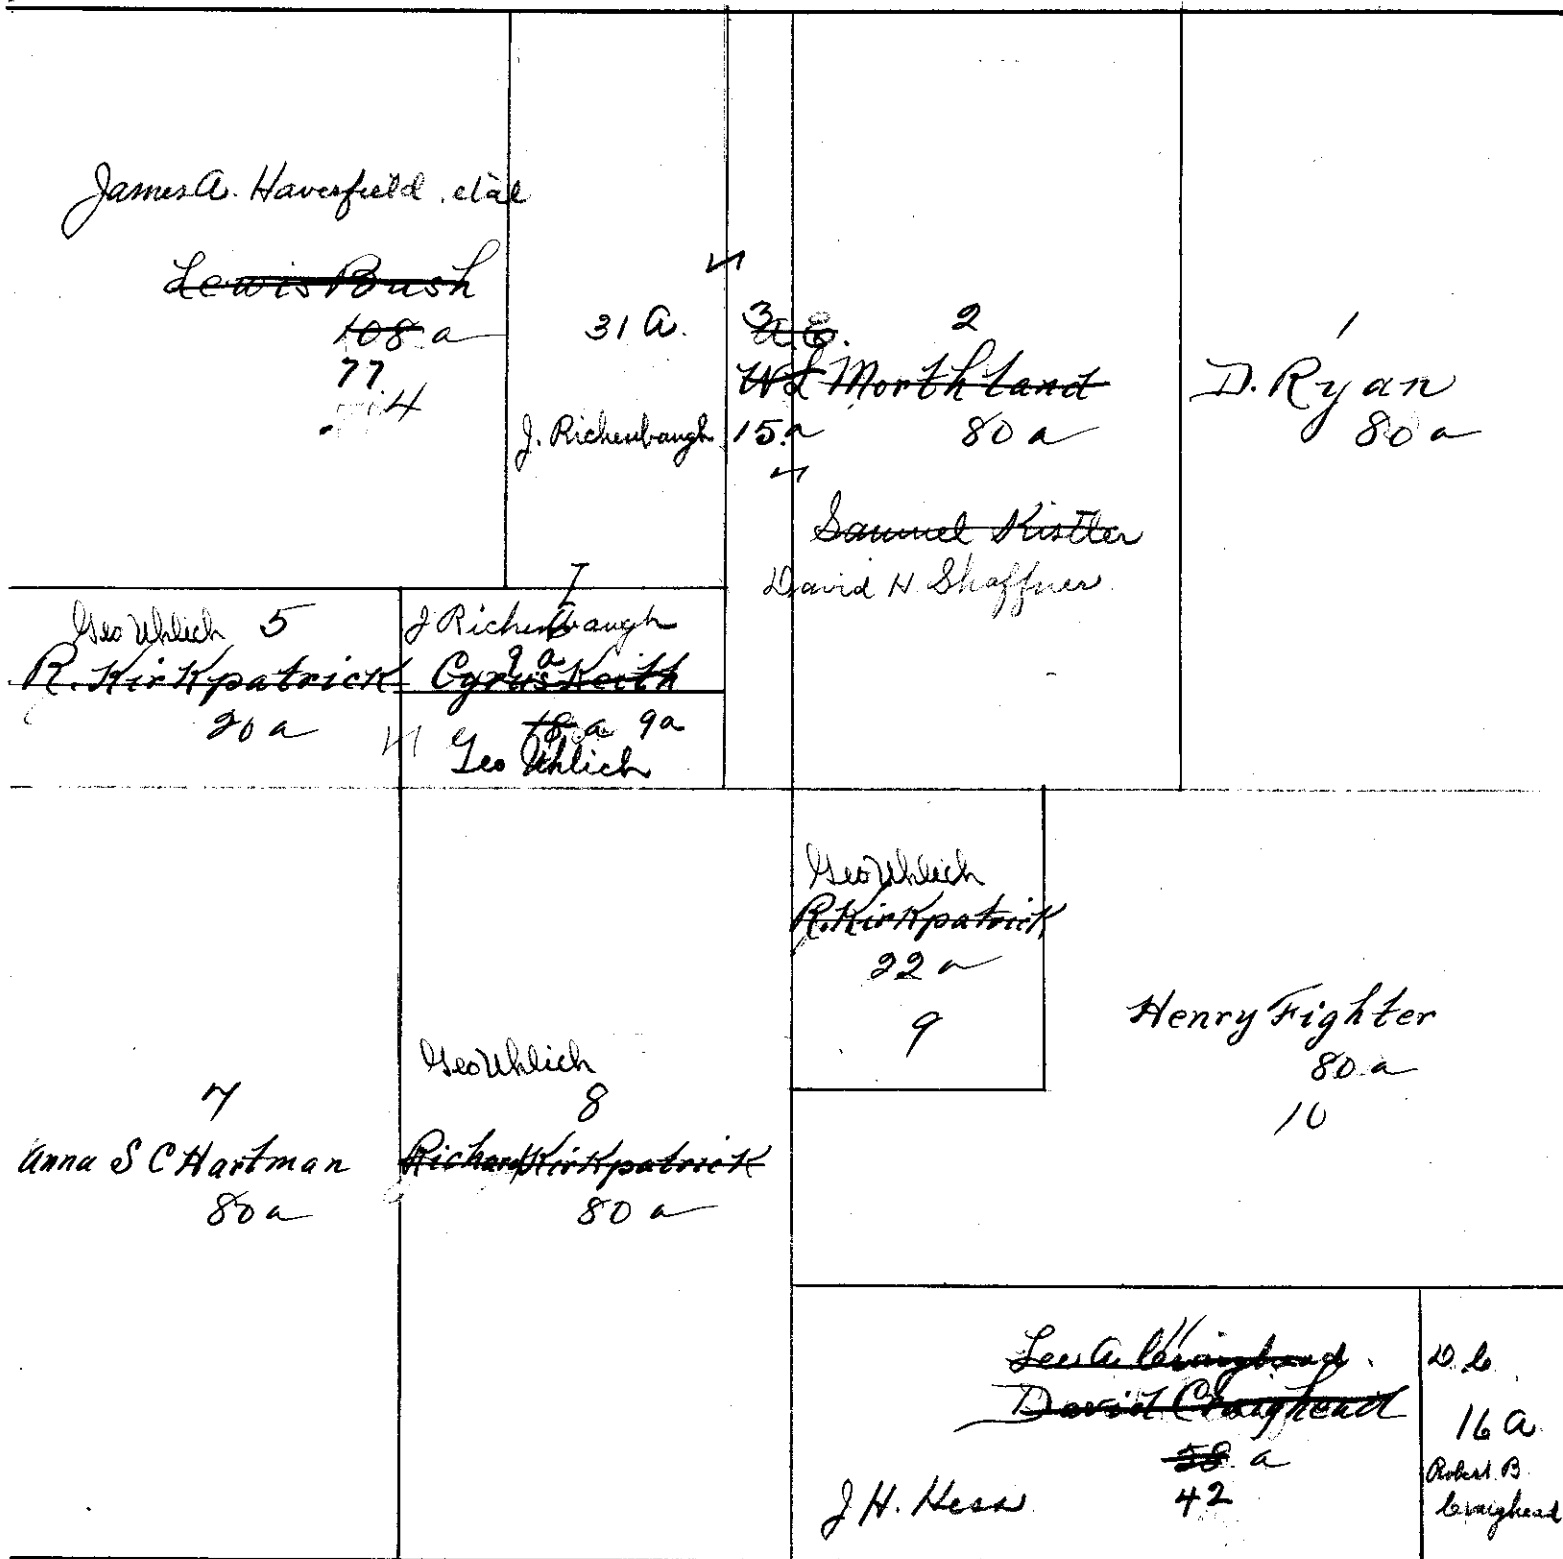 James A. Haverfield. etal
Lewis Bush
108 a
77
4
31 A.
J. Richenbaugh
3
A.E.
W L Morthland
15 a
2
80 a
Samuel Kistler
David H Shaffner
1
D. Ryan
80 a
Geo Uhlich 5
R. Kirkpatrick
20 a
J Richenbaugh
9 a
Cyrus Keith
18 a 9a
Geo Uhlich
Geo Uhlich
R. Kirkpatrick
22 a
9
Henry Fighter
80 a
10
7
Anna S C Hartman
80 a
Geo Uhlich
8
Richard Kirkpatrick
80 a
11
Lee A Craighead.
David Craighead
58 a
42
J H. Hess
D. C.
16 A.
Robert B.
Craighead